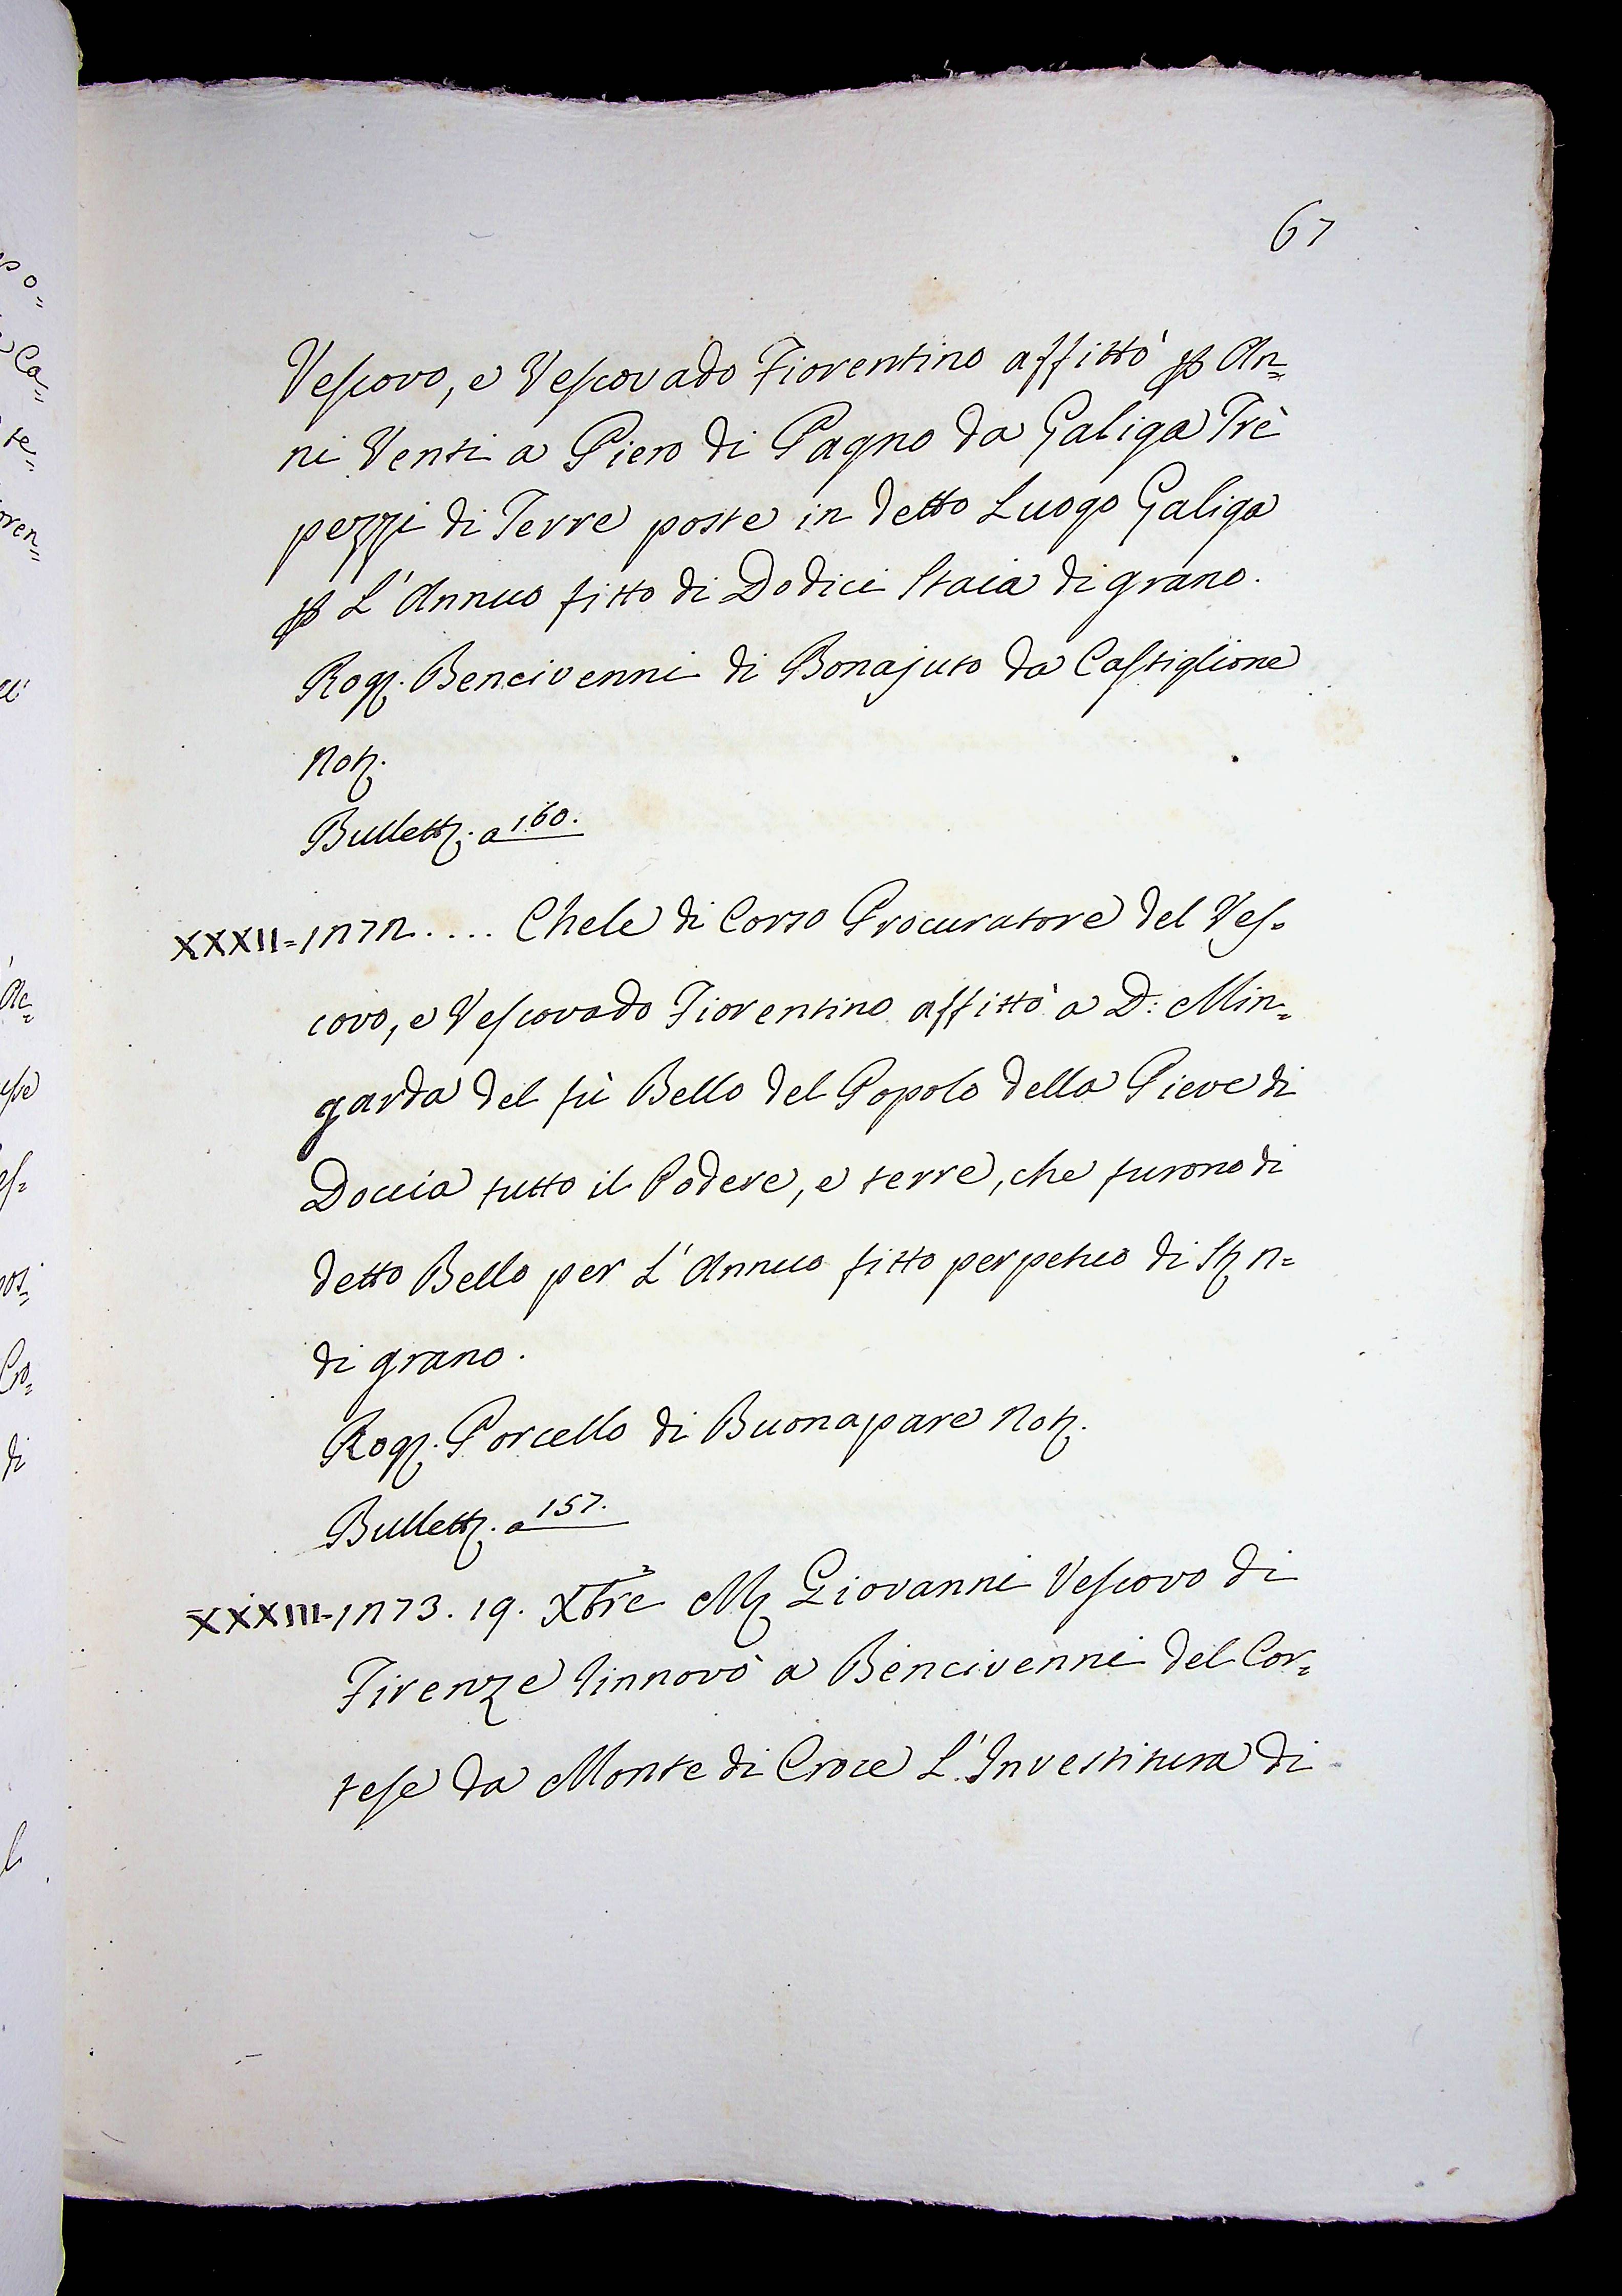 67
Vescovo, e Vescovado Fiorentino affittò ꝑ An=
ni Venti a Piero di Pagno da Galiga Trè
pezzi di Terre poste in detto Luogo Galiga
ꝑ L'Annuo fitto di Dodici Staia di grano.
Rog. Bencivenni di Bonajuto da Castiglione
Not.
Bullett. a 160.
XXXII=1272.... Chele di Corso Procuratore del Ves=
covo, e Vescovado Fiorentino affittò a D: Min=
garda del fù Bello del Popolo della Pieve di
Doccia tutto il Podere, e terre, che furono di
detto Bello per L'Annuo fitto perpetuo di St 2=
di grano.
Rog. Porcello di Buonapare Not.
Bullett. a 157.
XXXIII=1273. 19. Xbre M Giovanni Vescovo di
Firenze rinnovò a Bencivenni del Cor=
tese da Monte di Croce L'Investitura di